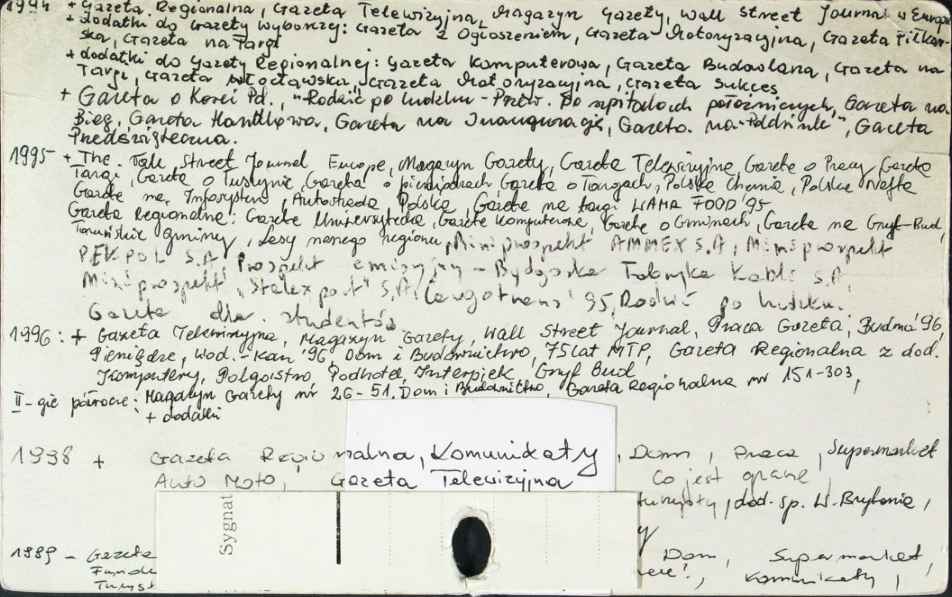 1994 + Gazeta Regionalna, Gazeta Telewizyjna, Magazyn Gazety, Wall Street Journal
+ dodatki do Gazety Wyborczej: Gazeta z Ogłoszeniem, Gazeta Motoryzacyjna, Gazeta Piłkar-
ska, Gazeta na Targi
+ dodatki do Gazety Regionalnej: Gazeta Komputerowa, Gazeta Budowlana, Gazeta na
Targi, Gazeta Włocławska, Gazeta Motoryzacyjna, Gazeta Sukces
+ Gazeta o Korei Pd., "Rodzić po ludzku - Przew. po szpitalach położniczych, Gazeta na
Bieg, Gazeta Handlowa, Gazeta na Inaugurację, Gazeta Gazeta
Przedświąteczna.
1995 + The Street Journal Europe, Magazyn Gazety, Gazeta Telewizyjna, Gazeta o Pracy, Gazeta
Targi, Gazeta o Gazeta o pieniądzach, Gazeta o Targach, Polska Chemia, Polska Nafta
Gazeta na Infosystem, Autostrada Polska, Gazeta na targi FOOD '95
Gazeta Regionalna: Gazeta Uniwersytecka, Gazeta Komputerowa, Gazeta o Gminach, Gazeta na Gryf-Bud,
Toruńskie gminy, Lasy naszego regionu, Miniprospekt AMMEX S.A, Miniprospekt
PEKPOL S.A Prospekt emisyjny - Bydgoska Fabryka Kabli S.A,
Miniprospekt "Stalexport" S.A, '95, Rodzić po ludzku.
Gazeta dla studentów
1996: + Gazeta Telewizyjna, Magazyn Gazety, Wall Street Journal, Praca Gazeta, Budma '96,
Pieniądze, Wod.-Kan '96, Dom i Budownictwo, 75 lat MTP, Gazeta Regionalna z dod.
Komputery, Podhotel, Gryf Bud
II-gie półrocze: Magazyn Gazety nr 26-51, Dom i Budownictwo, Gazeta Regionalna nr 151-303,
+ dodatki
1998 + Gazeta Regionalna, Komunikaty, Dom, Praca, Supermarket
Auto Moto, Gazeta Telewizyjna Co jest grane
dod. sp. W. Brytania,
Sygnat
Gazeta Dom, Supermarket,
Komunikaty,